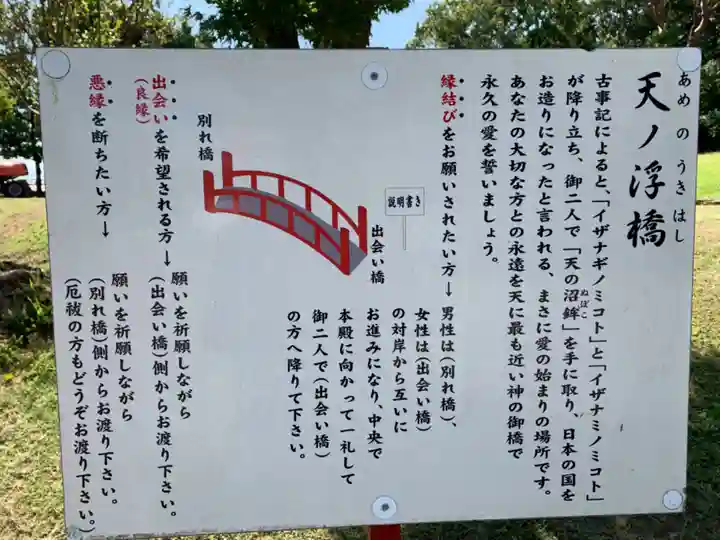 天ノ浮橋
あめのうきはし
古事記によると、「イザナギノミコト」と「イザナミノミコト」
が降り立ち、御二人で「天の沼鉾」を手に取り、日本の国を
ぬぼこ
お造りになったと言われる、まさに愛の始まりの場所です。
あなたの大切な方との永遠を天に最も近い神の御橋で
永久の愛を誓いましょう。
縁結びをお願いされたい方→男性は(別れ橋)、
女性は(出会い橋)
の対岸から互いに
お進みになり、中央で
本殿に向かって一礼して
御二人で(出会い橋)
の方へ降りて下さい。
説明書き
出会い橋
別れ橋
出会いを希望される方→願いを祈願しながら
(良縁)
(出会い橋)側からお渡り下さい。
悪縁を断ちたい方→願いを祈願しながら
(別れ橋)側からお渡り下さい。
(厄祓の方もどうぞお渡り下さい。)